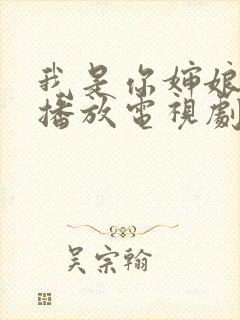 我是你婶娘
播放電視劇
吴宗翰